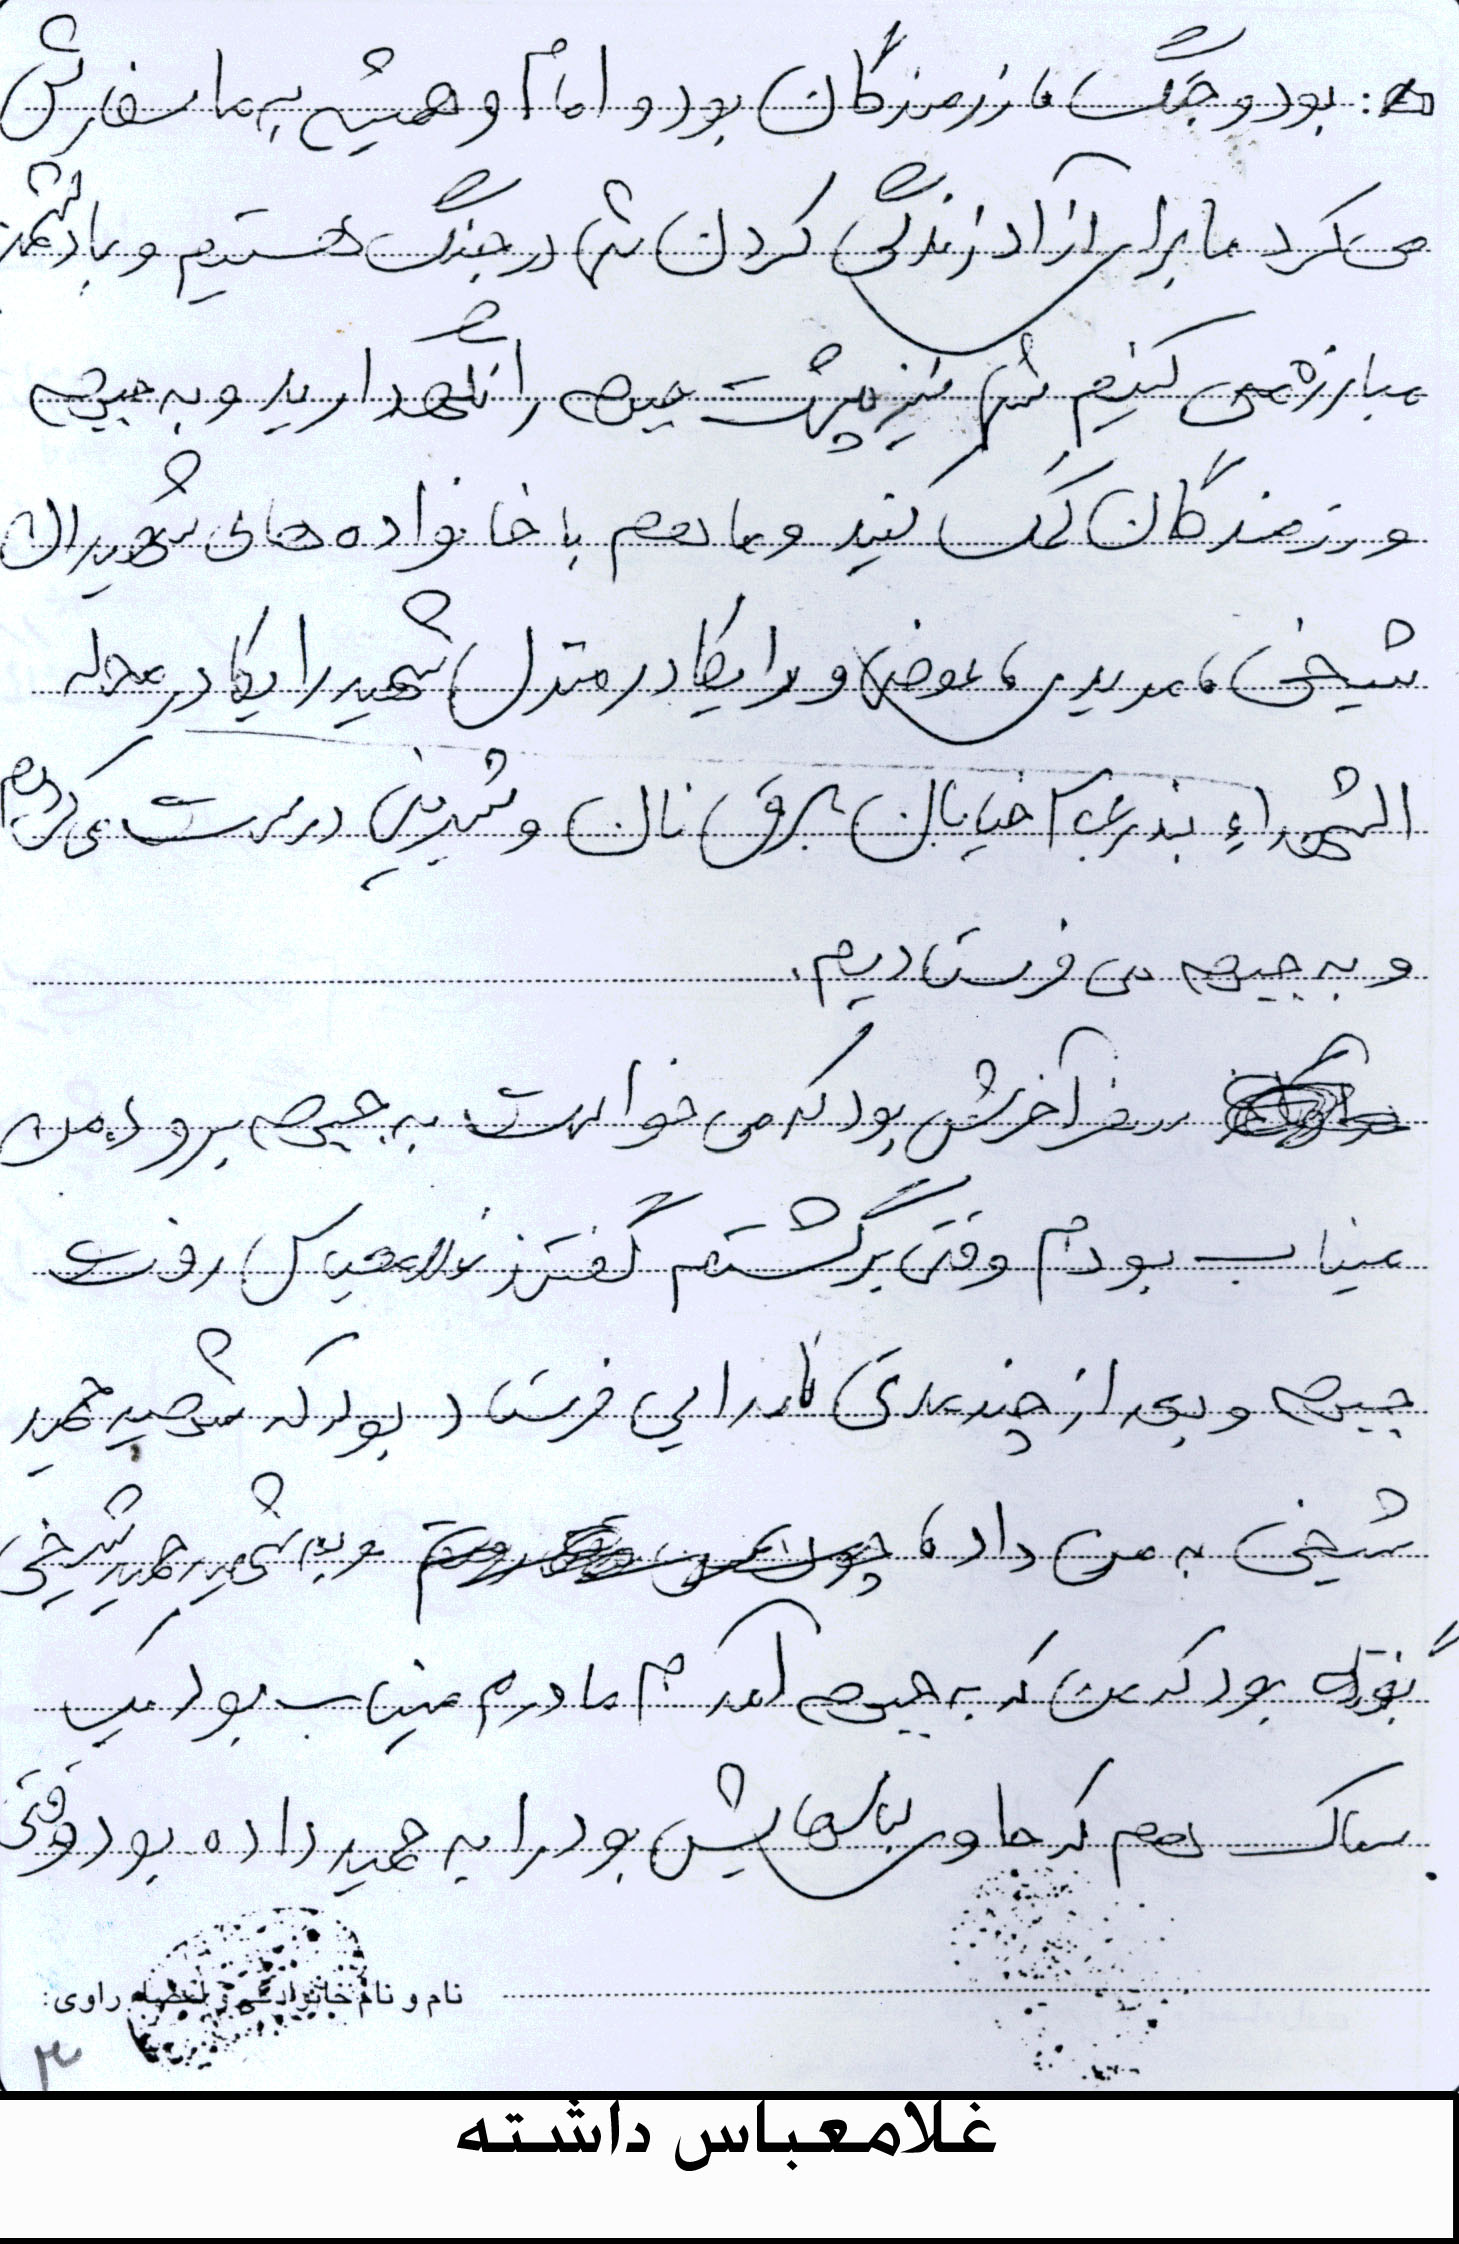 بود و جنگ، رزمندگان بود و امام و همیشه به ما سفارش
می‌کرد ما برای آزاد زندگی کردن شما در جنگ هستیم و با دشمن
مبارزه می کنیم شما نیز پشت جبهه را نگهدارید و به جبهه
و رزمندگان کمک کنید و ما هم با خانواده های شهیدان
شیخی، مدیدی، عوض و رایکا در منزل شهید رایکا در محله
الشهداء بندرعباس خیابان برق نان و شیرینی درست می کردیم
و به جبهه می فرستادیم.
سفر آخرش بود که می خواست به جبهه برود، من
میناب بودم وقتی برگشتم گفتند غلامعباس رفت
جبهه و بعد از چند مدتی نامه ایی فرستاد بود که شهید حمید
شیخی به من داد، و به شهید حمید شیخی
گفته بود که من که به جبهه آمدم مادرم میناب بود یک
ساک هم که حاوی لباسهایش بود را به حمید داده بود وقتی
نام و نام خانوادگی و امضاء راوی:
۳
غلامعباس داشته